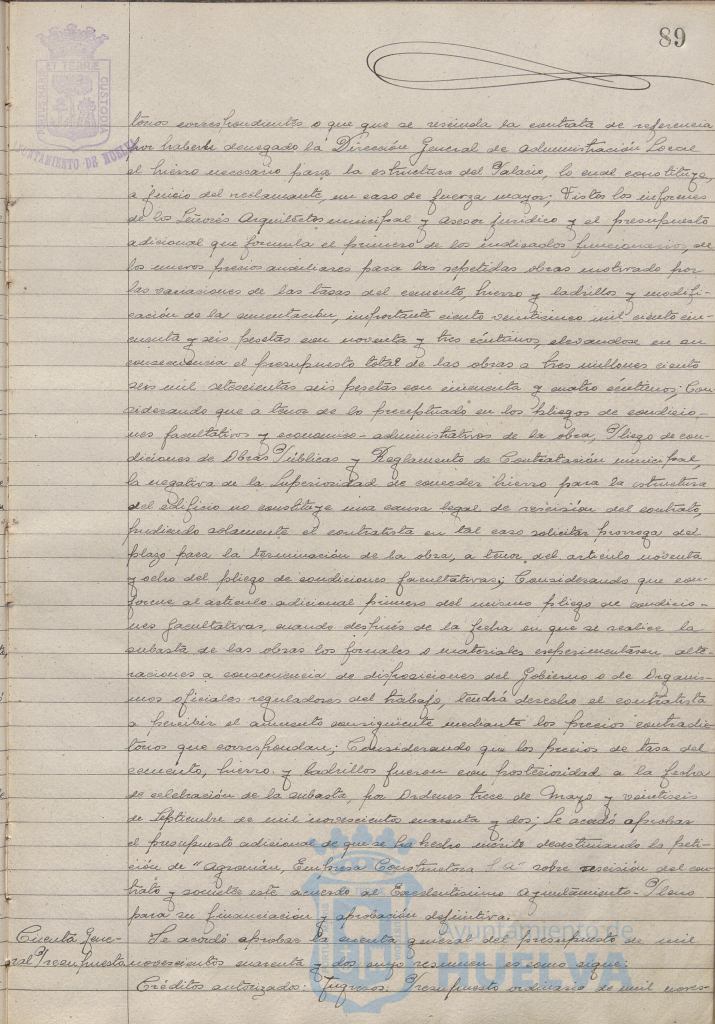 89
PORTUS MARIS ET TERRAE CUSTODIA
AYUNTAMIENTO DE HUELVA
torios correspondientes o que que se rescinda la contrata de referencia
por haberle denegado la Dirección General de Administración Local
el hierro necesario para la estructura del Palacio, lo cual constituye,
a juicio del reclamante, un caso de fuerza mayor; Vistos los informes
de los Señores Arquitectos municipal y asesor jurídico y el presupuesto
adicional que formula el primero de los indicados funcionarios, de
los nuevos precios auxiliares para las repetidas obras motivado por
las variaciones de las tasas del cemento, hierro y ladrillos y modifi-
cación de la cimentación, importante ciento veinticinco mil ciento cin-
cuenta y seis pesetas con noventa y tres céntimos, elevandose en su
consecuencia el presupuesto total de las obras a tres millones ciento
seis mil setescientas seis pesetas con cincuenta y cuatro céntimos; Con-
siderando que a tenor de lo preceptuado en los pliegos de condicio-
nes facultativos y económico-administrativos de la obra, Pliego de con-
diciones de Obras Públicas y Reglamento de Contratación municipal,
la negativa de la Superioridad de conceder hierro para la estructura
del edificio no constituye una causa legal de rescisión del contrato,
pudiendo solamente el contratista en tal caso solicitar prorroga del
plazo para la terminación de la obra, a tenor del articulo noventa
y ocho del pliego de condiciones facultativas; Considerando que con-
forme al articulo adicional primero del mismo pliego de condicio-
nes facultativas, cuando después de la fecha en que se realice la
subasta de las obras los jornales o materiales experimentasen alte-
raciones a consecuencia de disposiciones del Gobierno o de Organis-
mos oficiales reguladores del trabajo, tendrá derecho el contratista
a percibir el aumento consiguiente mediante los precios contradic-
torios que correspondan; Considerando que los precios de tasa del
cemento, hierro y ladrillos fueron con posterioridad a la fecha
de celebración de la subasta, por Ordenes trece de Mayo y veintiseis
de Septiembre de mil novescientos cuarenta y dos; Se acordó aprobar
el presupuesto adicional de que se ha hecho mérito desestimando la peti-
ción de "Agroman, Empresa Constructora S.A" sobre rescisión del con-
trato y someter este acuerdo al Excelentisimo Ayuntamiento-Pleno
para su financiación y aprobación definitiva.
Cuenta Gene- Se acordó aprobar la cuenta general del presupuesto de mil
ral Presupuesto novescientos cuarenta y dos cuyo resumen es como sigue:
Créditos autorizados: Ingresos: Presupuesto ordinario de mil noves-
Ayuntamiento de
HUELVA